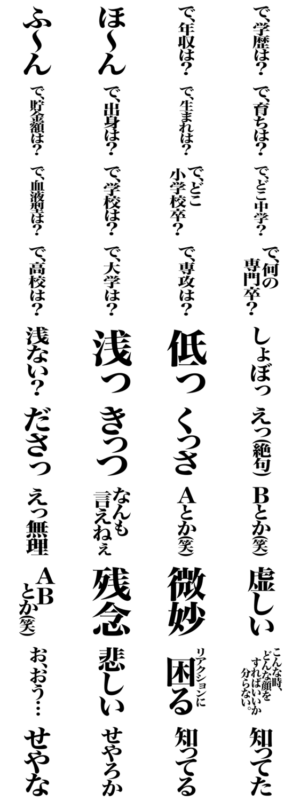 ふ〜ん
ほ〜ん
で、年収は？
で、学歴は？
で、貯金額は？
で、出身は？
で、生まれは？
で、育ちは？
で、血液型は？
で、学校は？
で、どこ
小学校卒？
で、どこ中学？
で、高校は？
で、大学は？
で、専攻は？
で、何の
専門卒？
浅ない？
浅っ
低っ
しょぼっ
ださっ
きっつ
くっさ
えっ(絶句)
えっ無理
なんも
言えねぇ
Aとか(笑)
Bとか(笑)
AB
とか(笑)
残念
微妙
虚しい
お、おう…
悲しい
リアクションに
困る
こんな時、
どんな顔を
すればいいか
分らない。
せやな
せやろか
知ってる
知ってた